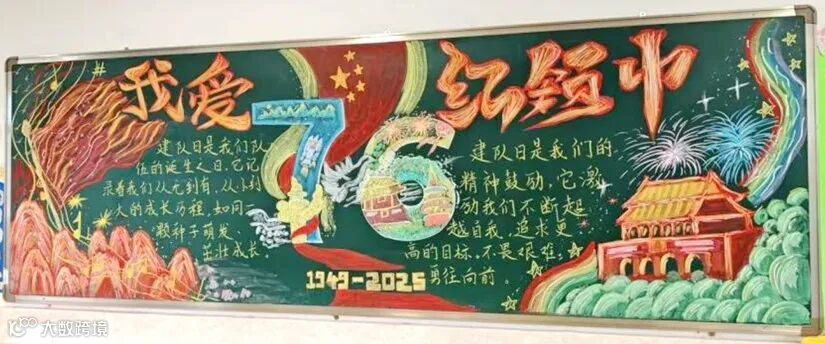 我爱
红领巾
76
建队日是我们队
伍的诞生之日,它记
录着我们从无到有,从小到
大的成长历程,如同一
颗种子萌发,
茁壮成长。
建队日是我们的
精神鼓励,它激
励我们不断超
越自我,追求更
高的目标,不畏艰难,
勇往向前。
1949-2025
大数跨境